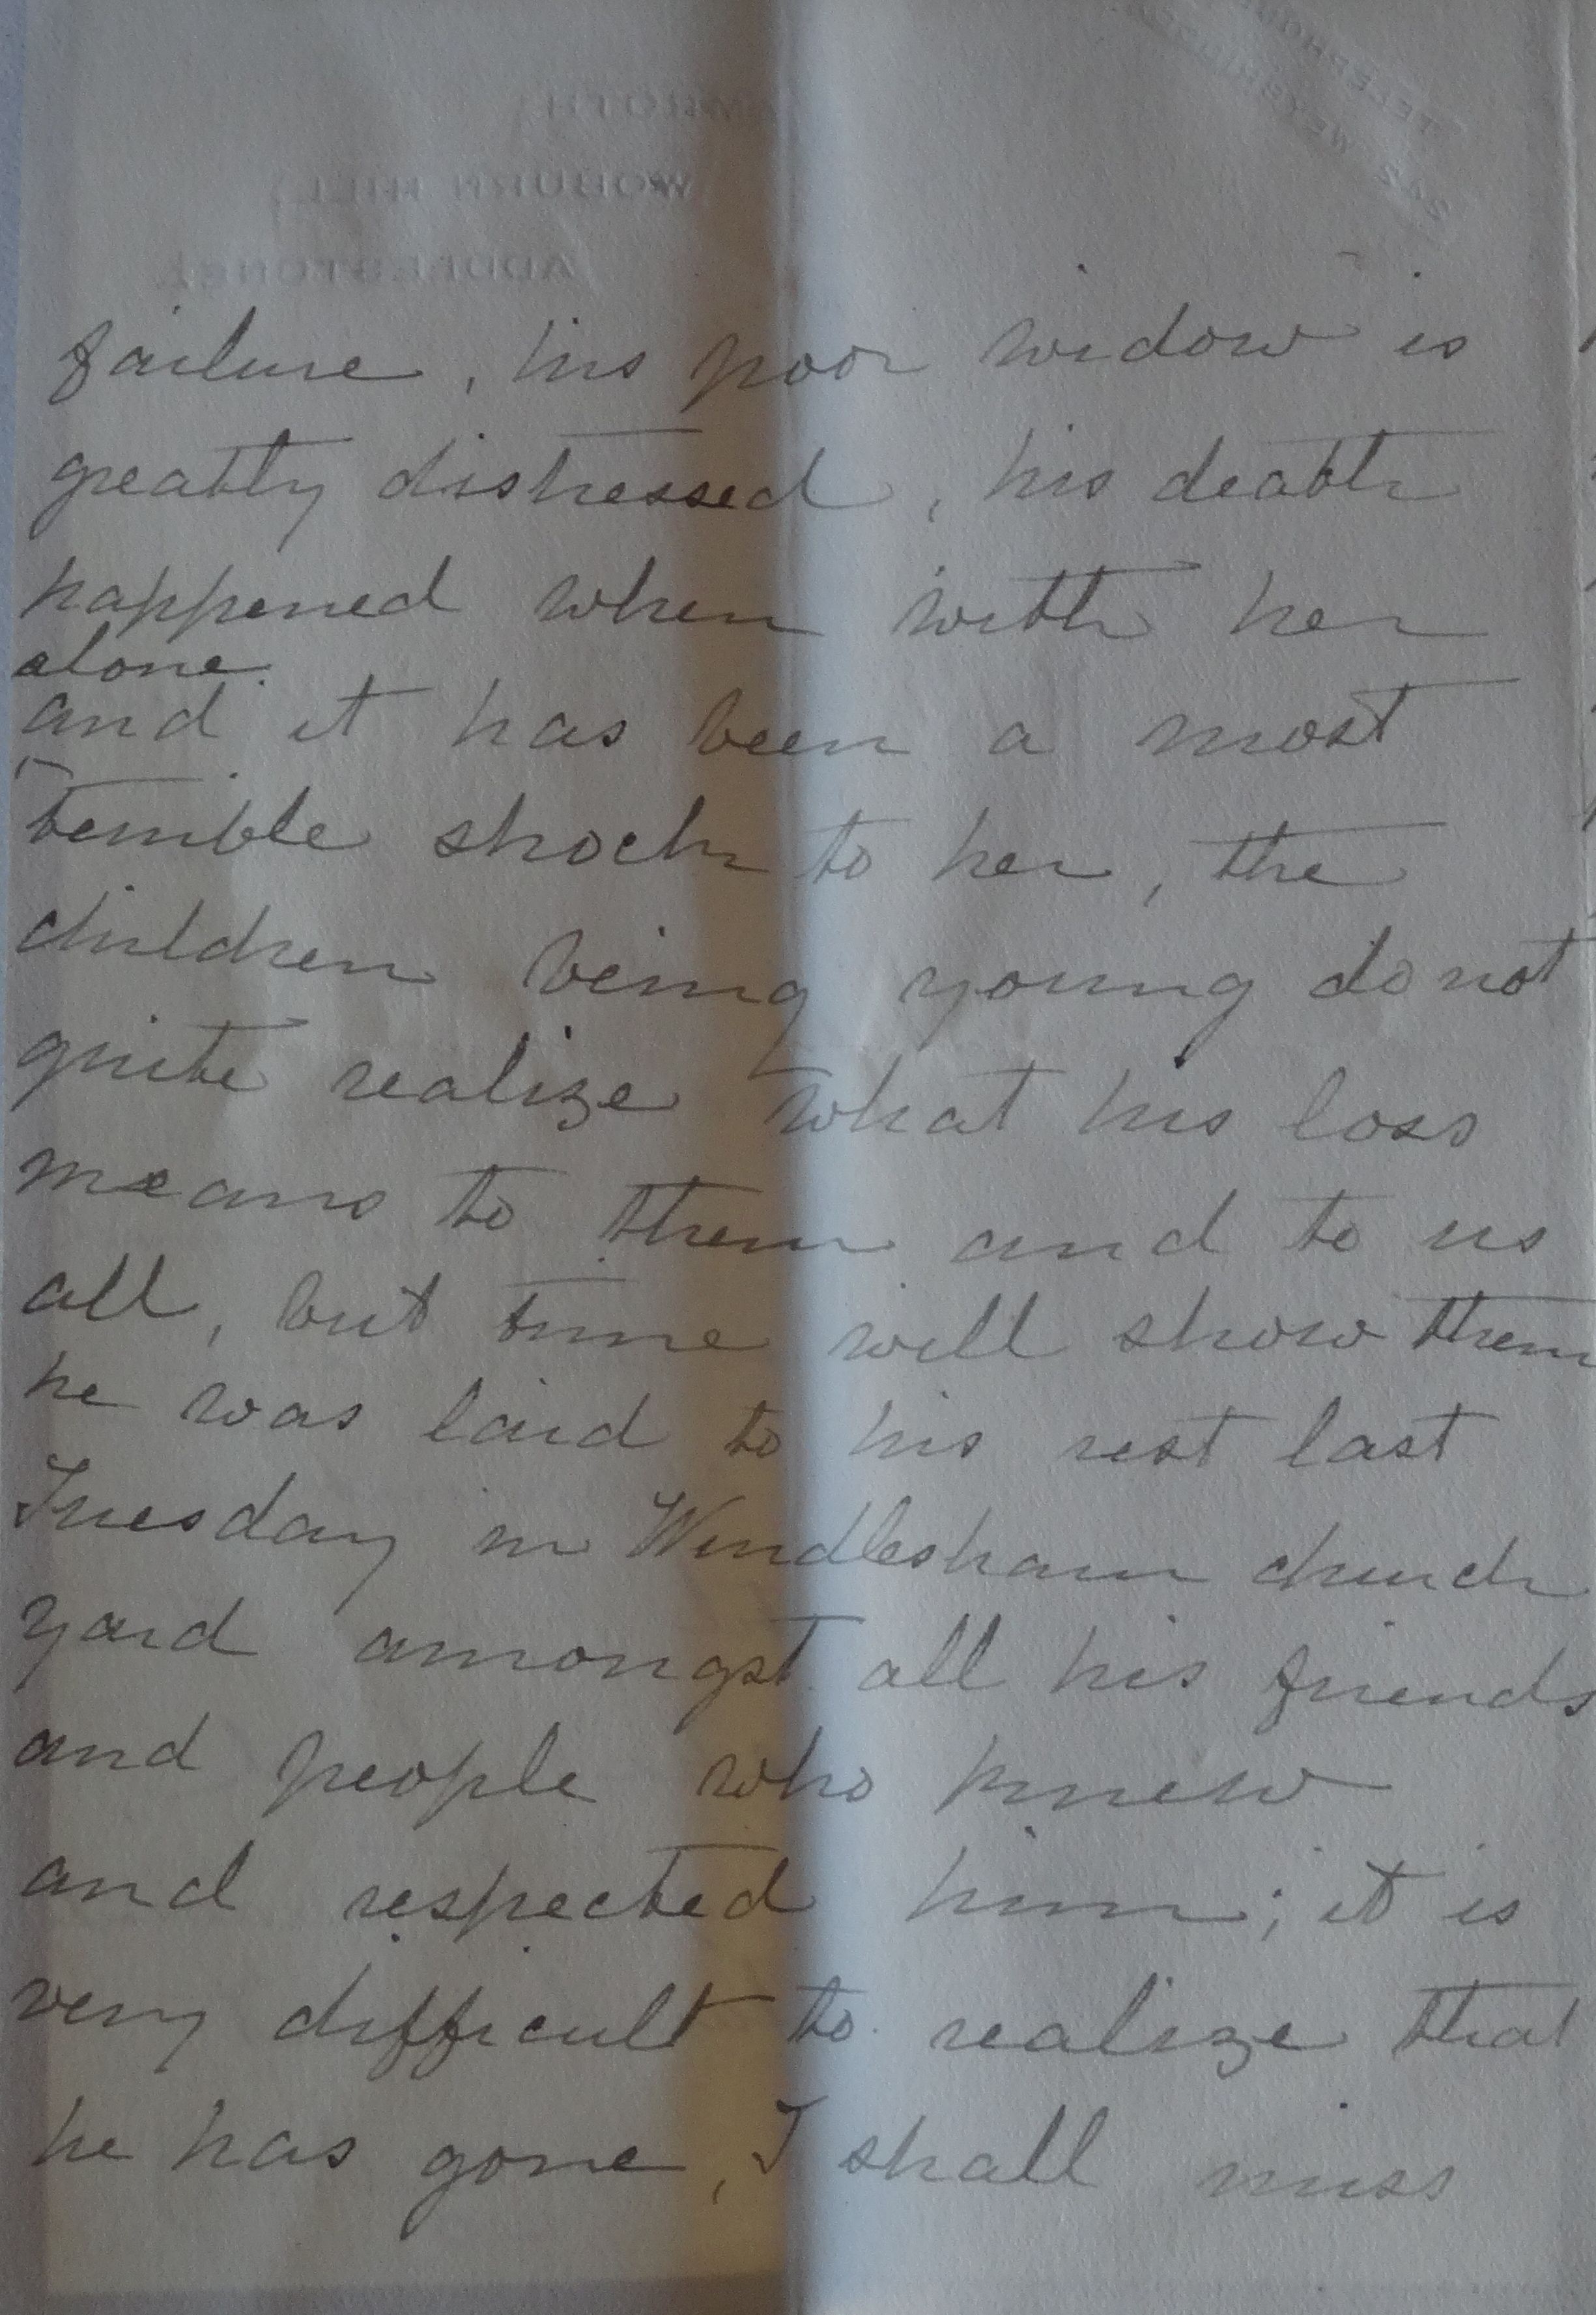 WOBURN HILL,
ADDLESTONE.
TELEPHONE
WEYBRIDGE
failure, his poor widow is
greatly distressed, his death
happened when with her
alone.
and it has been a most
terrible shock to her, the
children being young do not
quite realize what his loss
means to them and to us
all, but time will show them
he was laid to his rest last
Tuesday in Windlesham church
yard amongst all his friends
and people who knew
and respected him; it is
very difficult to realize that
he has gone, I shall miss